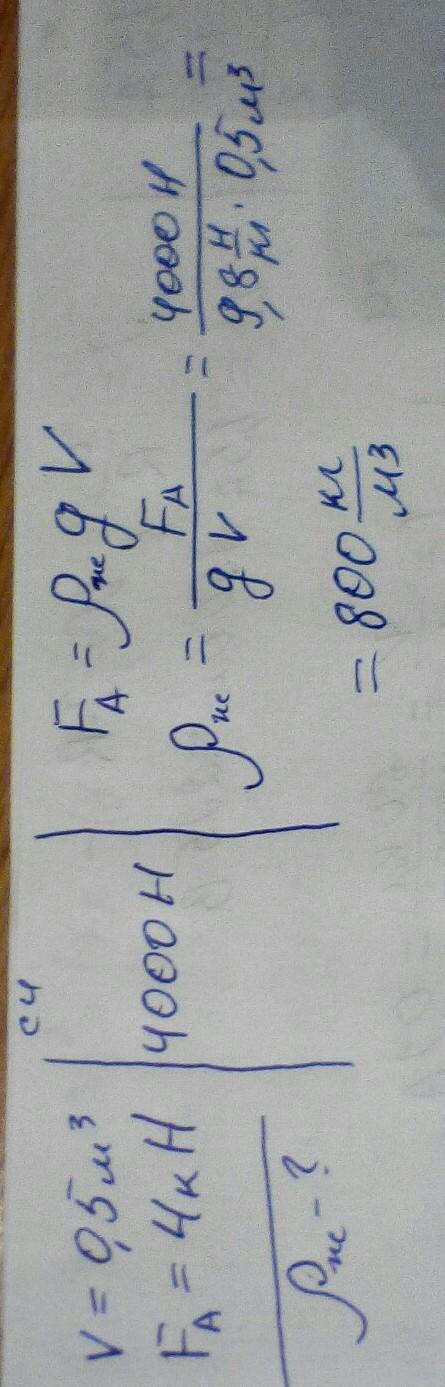 V = 0,5 м³
F_A = 4 кН
ρ_ж - ?
СИ
4000 Н
F_A = ρ_ж g V
ρ_ж = F_A / (g V) = 4000 Н / (9,8 Н/кг · 0,5 м³) =
= 800 кг/м³